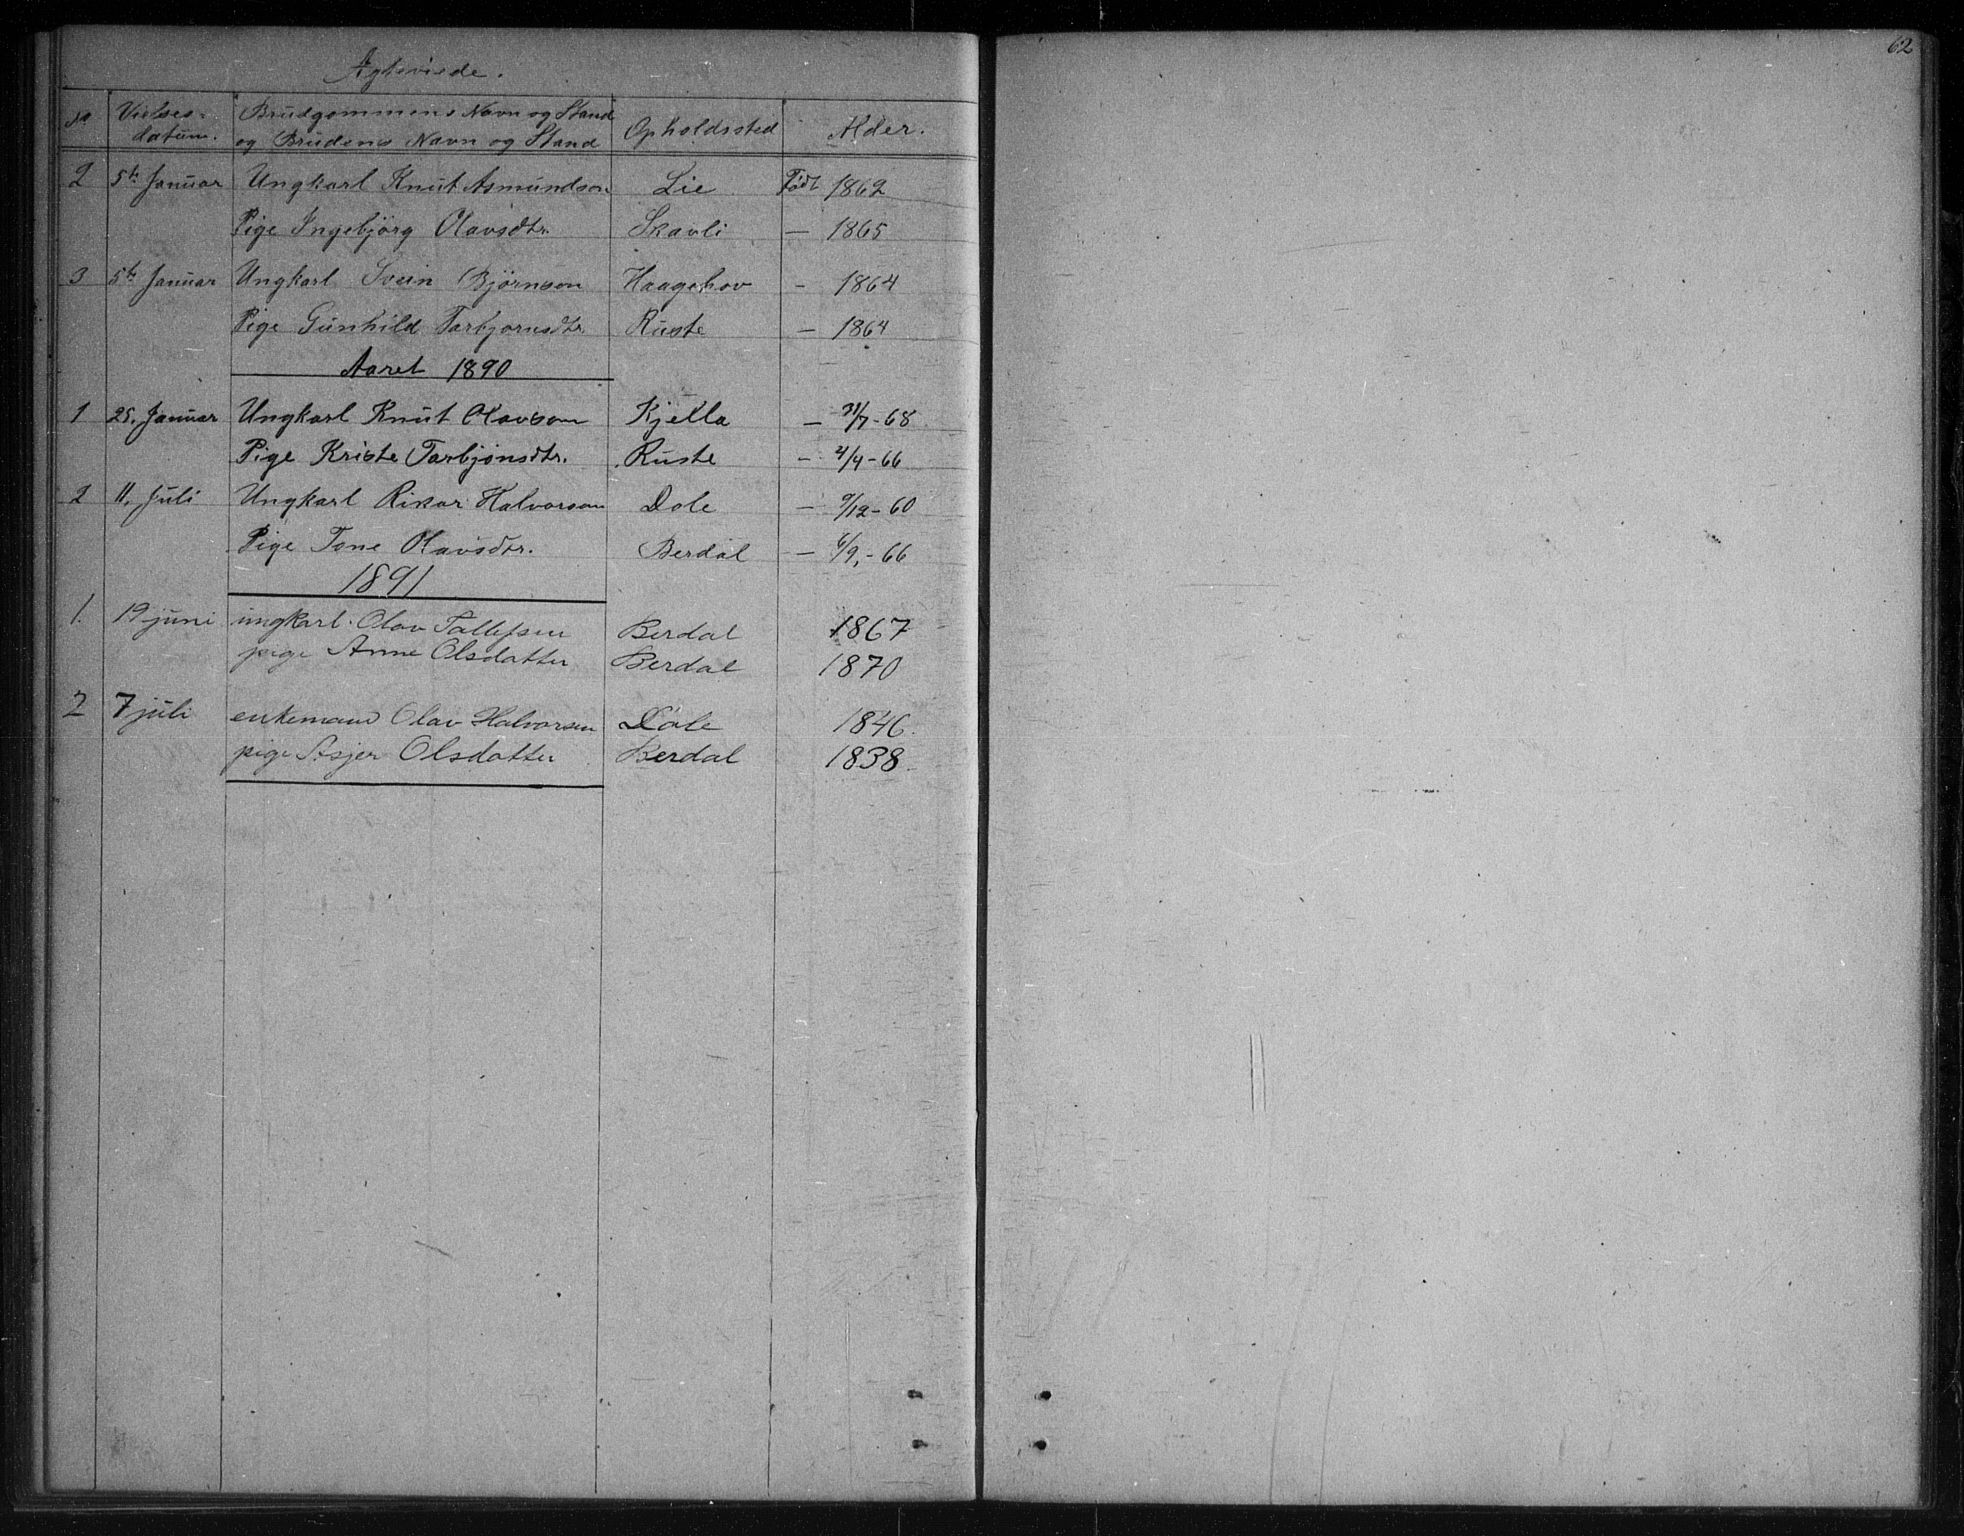 62
Ægteviede.
No Vielses- Brudgommens Navn og Stand Opholdssted Alder.
datum. og Brudens Navn og Stand
2 5te Januar Ungkarl Knut Asmundson Lie Født 1862
Pige Ingebjörg Olavsdtr. Skavli — 1865
3 5te Januar Ungkarl Svein Björnson Haagahov - 1864
Pige Gunhild Tarbjørnsdtr. Ruste — 1864
Aaret 1890
1 25. Januar Ungkarl Knut Olavson Kjella — 31/7-68
Pige Kriste Tarbjönsdtr. Ruste - 4/4-66
2 11. Juli Ungkarl Rikar Halvorson Dole — 9/12-60
Pige Tone Olavsdtr. Berdal — 6/9,-66
1891
1. 19 juni ungkarl. Olav Tallefsen Berdal 1867
pige Anne Olsdatter Berdal 1870
2 7 juli enkemand Olav Halvorsen Dole 1846.
pige Asjer Olsdatter Berdal 1838